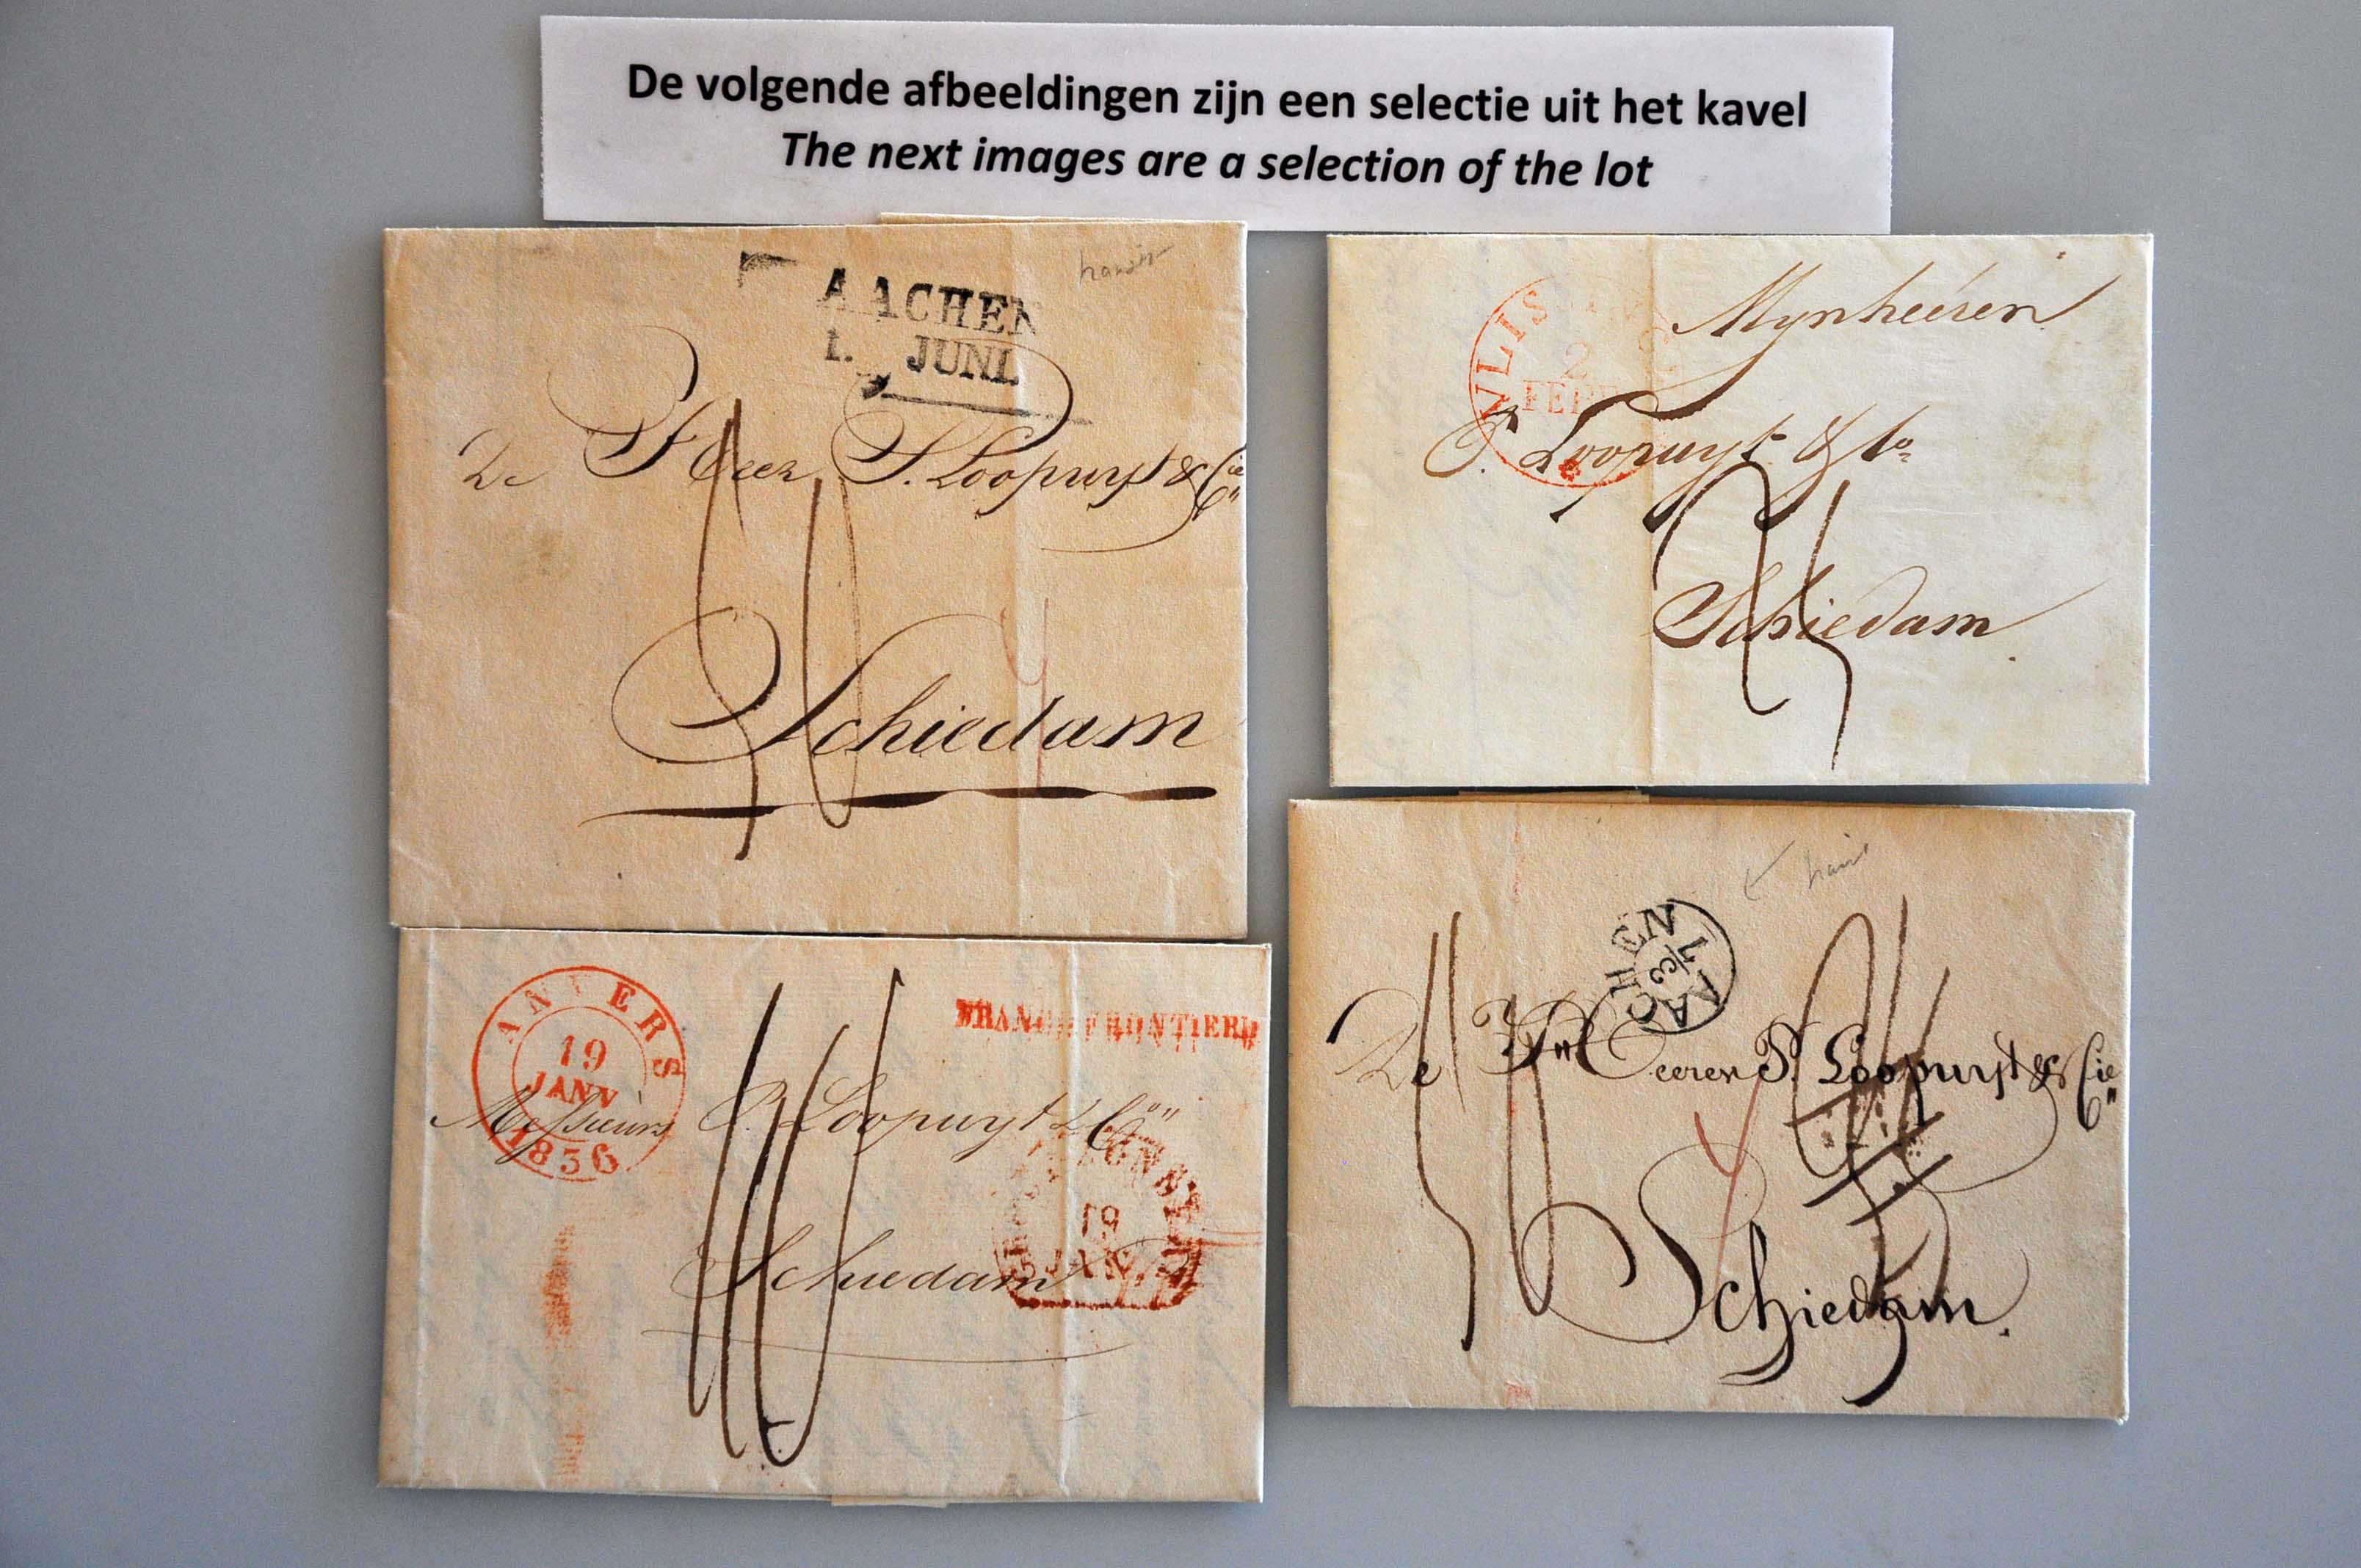 De volgende afbeeldingen zijn een selectie uit het kavel
The next images are a selection of the lot
AACHEN
1. JUNI.
De Heer P. Loopuyt & Cie
Schiedam
Mynheeren
2
FEB
P. Loopuyt & Co
Schiedam
ANVERS
19
JANV
1836
FRANCO FRONTIERE
Messieurs P. Loopuyt & Co
19
JAN
Schiedam
AACHEN
De Heeren P. Loopuyt & Cie
Schiedam.